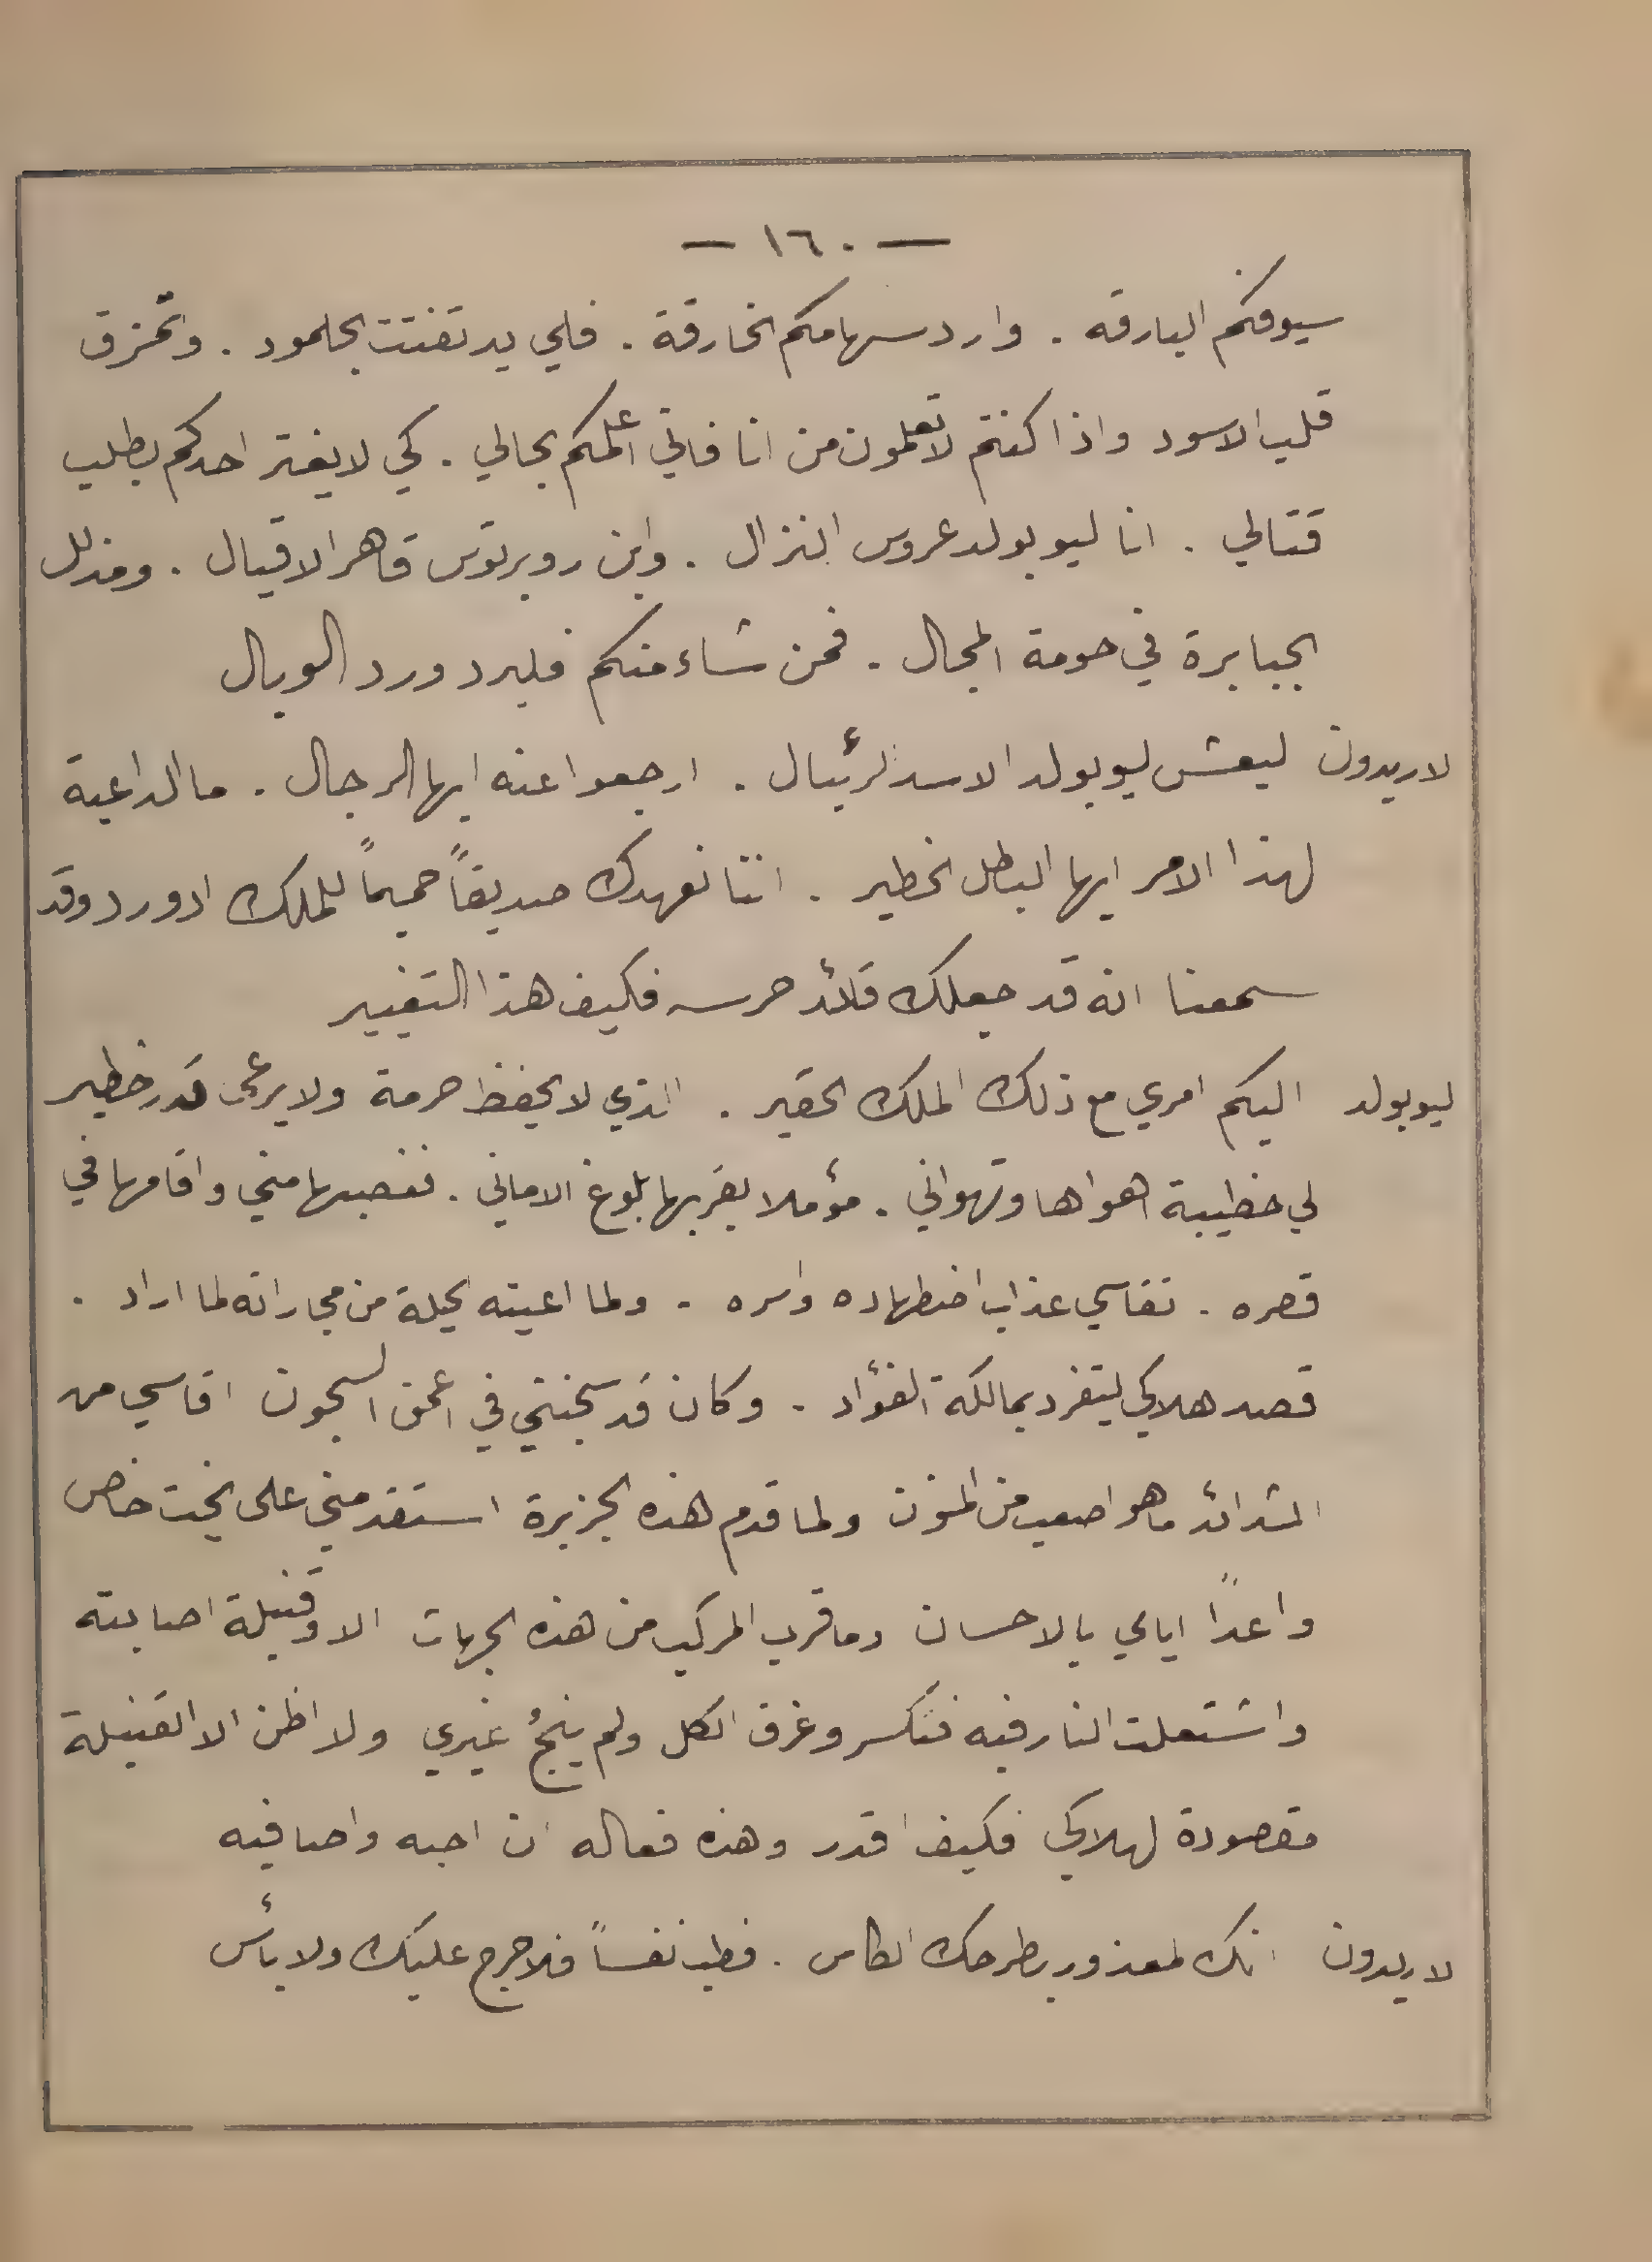 — ١٦٠ —
سيوفكم البارقه . وارد سهامكم الخارقة . فلي يد تفتت الجلمود . وتمزق
قلب الاسود واذا كنتم لا تعلمون من انا فاني اعلمكم بحالي . كي لا يغتر احدكم بطلب
قتالي . انا ليوبولد عروس النزال . وابن روبرتوس قاهر الاقيال . ومذلل
الجبابرة في حومة المجال . فمن شاء منكم فليرد ورد الوبال
لاريدون ليعش ليوبولد الاسد الرئبال . ارجعوا عنه ايها الرجال . ما الداعية
لهذا الامر ايها البطل الخطير . اننا نعهدك صديقاً حميماً للملك ادورد وقد
سمعنا انه قد جعلك قائد حرسه فكيف هذا التغيير
ليوبولد اليكم امري مع ذلك الملك الحقير . الذي لا يحفظ حرمة ولا يرعى قدر خطير
لي خطيبة اهواها وتهواني . مؤملا بقربها بلوغ الاماني . فغصبها مني واقامها في
قصره . تقاسي عذاب اضطهاده واسره . ولما اعيته الحيلة من مجاراته لما اراد .
قصد هلاكي ليتفرد بمالكة الفؤاد . وكان قد سجنني في اعمق السجون اقاسي من
الشدائد ما هو اصعب من المنون ولما قدم هذه الجزيرة استقدمني على يخت خاص
واعداً اياي بالاحسان وما قرب المركب من هذه الجهات الا وقنبلة اصابته
واشتعلت النار فيه فتكسر وغرق الكل ولم ينجُ غيري ولا اظن الا القنبلة
مقصودة لهلاكي فكيف اقدر وهذه فعاله ان احبه واصافيه
لاريدون انك لمعذور بطرحك الطاس . فطب نفساً فلا حرج عليك ولا بأس